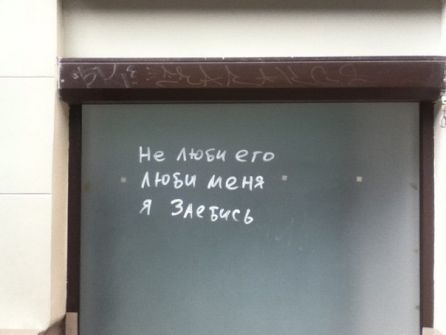 Не люби его
люби меня
я Злебись